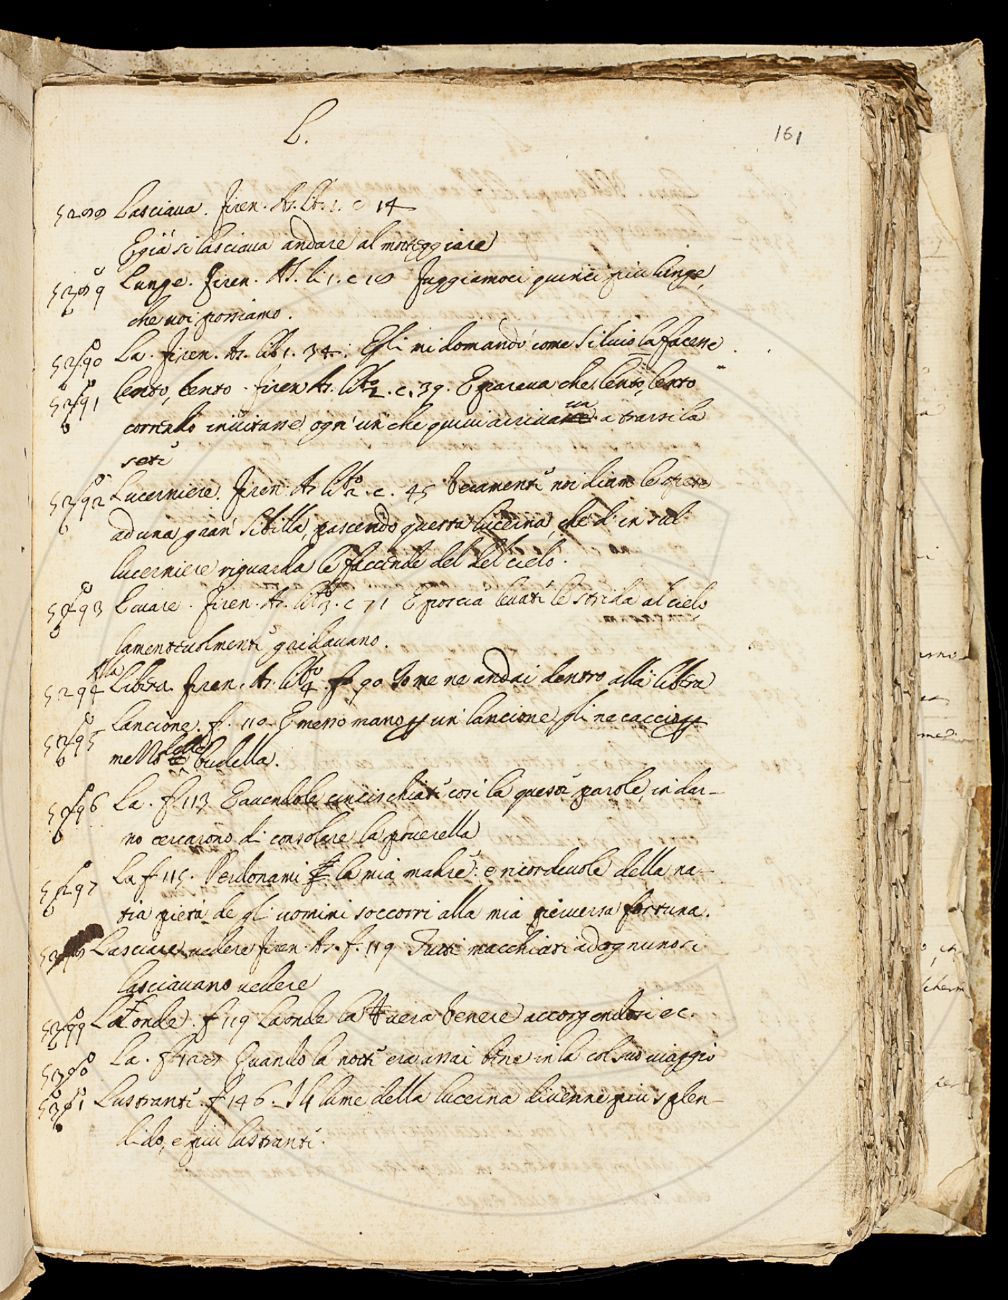 L.
161
5288 Lasciava. Firen. As. lib. 1. c 14
E già si lasciava andare al motteggiare
5289 Lunge. Firen. As. li. 1. c 18 fuggiamoci quinci più lunge,
che noi possiamo.
5290 La. Firen. As. lib. 1. 34. Egli mi domandò come Silvio la facesse
5291 lento, lento. firen As. lib.o 2. c. 39. E pareva che lento, lento
correndo invitasse ogn'un che quivi arrivava a trarsi la
sete
5292 Lucerniere. Firen. As lib.o 2. c. 45 Veramente noi diam le spese
ad una gran Sibilla, pascendo questa lucerna, che di in sul
lucerniere riguarda le faccende del del cielo.
5293 Levare. Firen. As. lib.o 3. c 71 E poscia levate le strida al cielo
lamentevolmente gridavano.
5294 Alla Libera. Firen. As. lib.o 4. f. 90 Io me ne andai dentro alla libera
5295 Lancione. f. 110. E messo mano un lancione, gli ne cacciò
mezzo delle budella.
5296 La. f 113 E avendole cincischiate così la queste parole, in dar-
no cercarono di consolare la poverella
5297 La f 115. Perdonami la mia madre: e ricordevole della na-
tia pietà de gli uomini soccorri alla mia perversa fortuna.
5298 Lasciare vedere Firen. As. f. 119 Tutti macchiati ad ognuno si
lasciavano vedere
5299 La Onde. f 119 Laonde la vera Venere accorgendosi ec.
5300 La. f 128 Quando la notte era assai bene in la col suo viaggio
5301 Lustrante. f 146. Il lume della lucerna divenne più splen-
dido, e più lustrante.